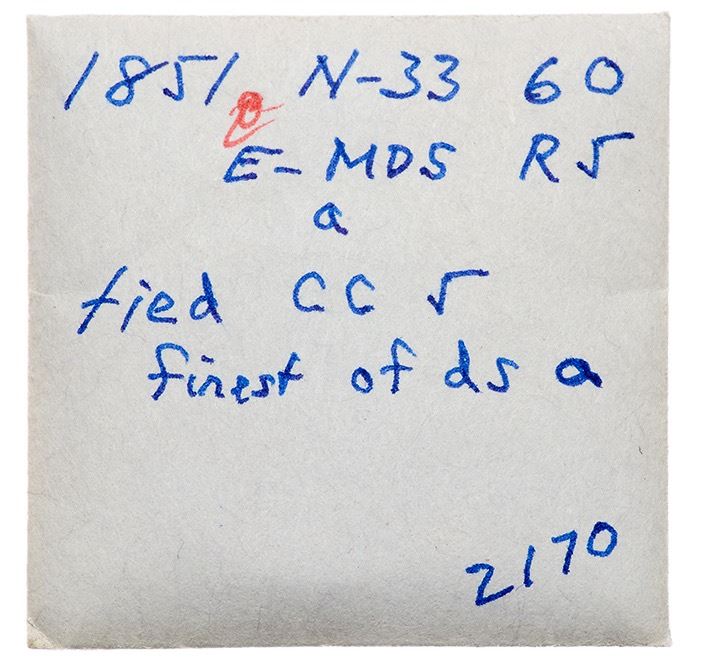 1851 N-33 60
E-MDS R5
a
tied CC 5
finest of ds a
2170